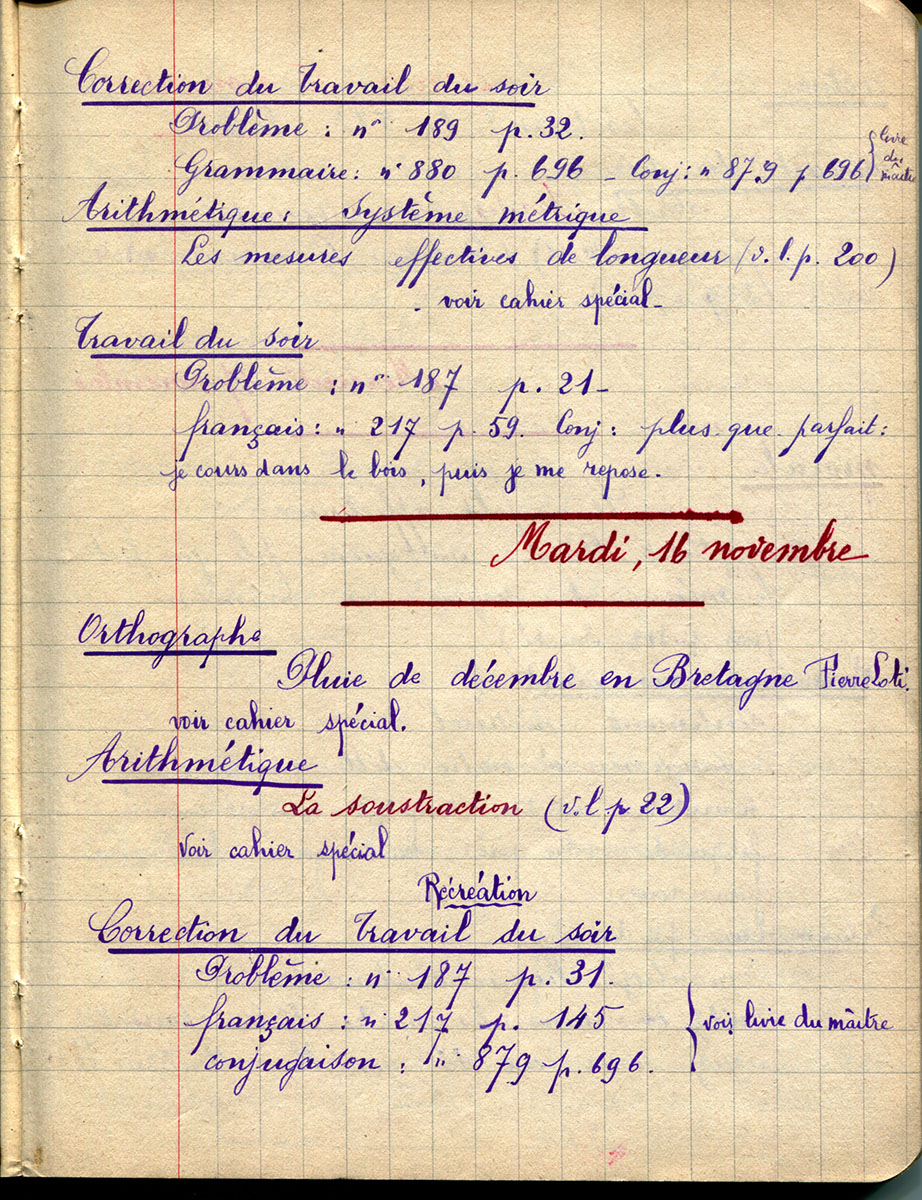 Correction du Travail du soir
Problème : n° 189 p. 32.
Grammaire : n° 880 p. 696 - Conj : n° 879 p 696 } livre du maître
Arithmétique : Système métrique
Les mesures effectives de longueur (v. l. p. 200)
voir cahier spécial -
Travail du soir
Problème : n° 187 p. 21 -
français : n° 217 p. 59. Conj : plus-que-parfait :
je cours dans le bois, puis je me repose.
Mardi, 16 novembre
Orthographe
Pluie de décembre en Bretagne Pierre Loti.
voir cahier spécial.
Arithmétique
La soustraction (v. l. p 22)
Voir cahier spécial
Récréation
Correction du Travail du soir
Problème : n° 187 p. 31.
français : n° 217 p. 145
} voir livre du maître
conjugaison : n° 879 p. 696.